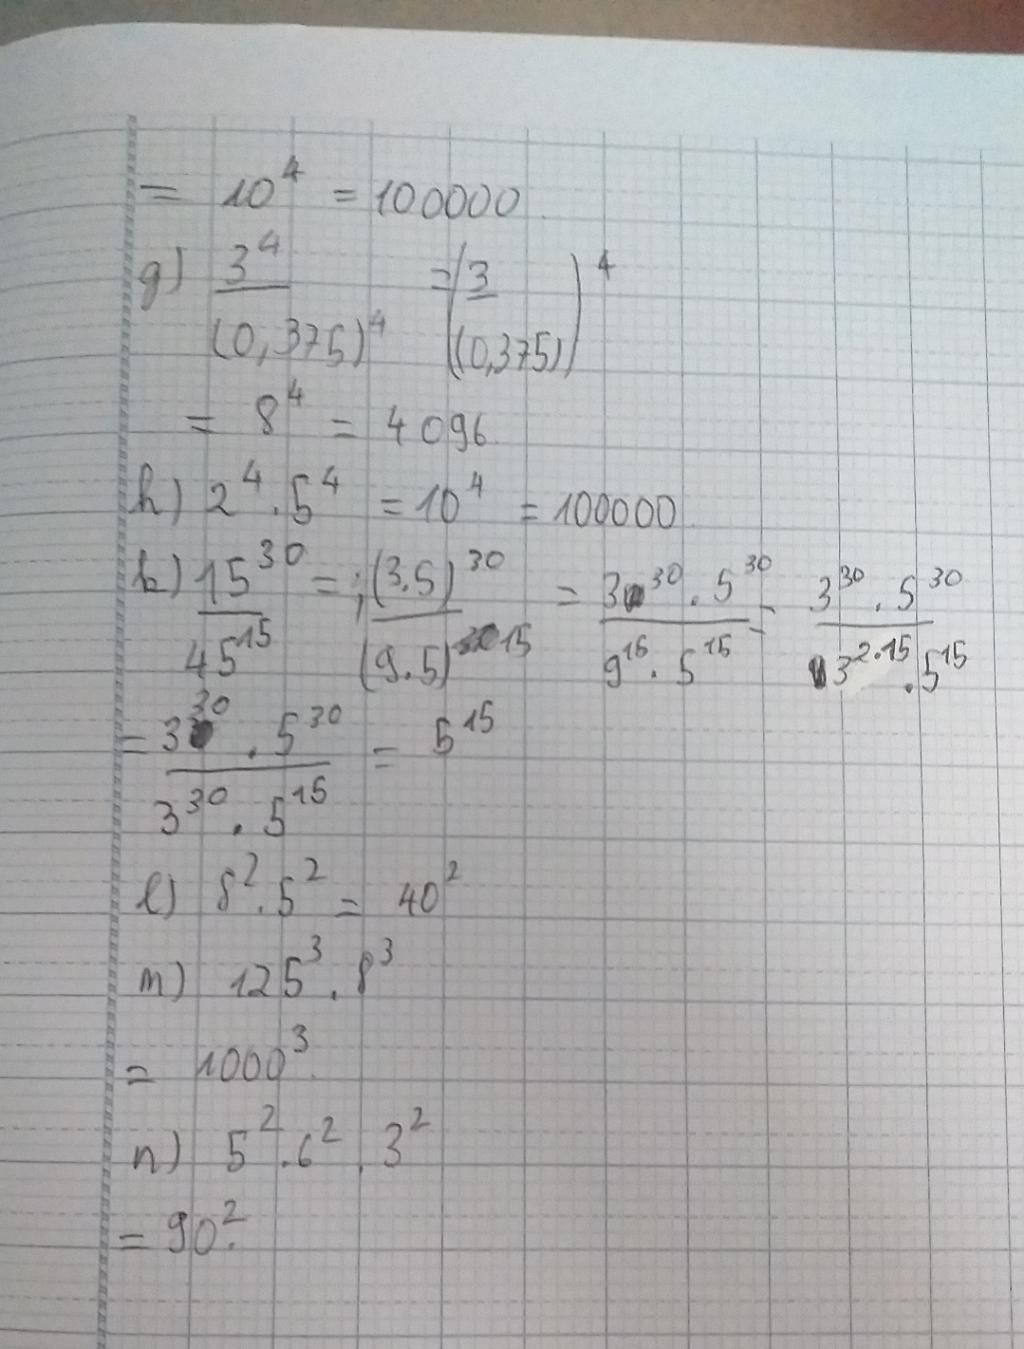 = 10⁴ = 100000
g) 3⁴/(0,375)⁴ = (3/(0,375))⁴
= 8⁴ = 4096
h) 2⁴ . 5⁴ = 10⁴ = 100000
k) 15³⁰/45¹⁵ = (3.5)³⁰/(9.5)¹⁵ = 3³⁰ . 5³⁰/9¹⁵ . 5¹⁵ = 3³⁰ . 5³⁰/3²·¹⁵ . 5¹⁵
= 3³⁰ . 5³⁰/3³⁰ . 5¹⁵ = 5¹⁵
l) 8² . 5² = 40²
m) 125³ . 8³
= 1000³
n) 5² . 6² . 3²
= 90².